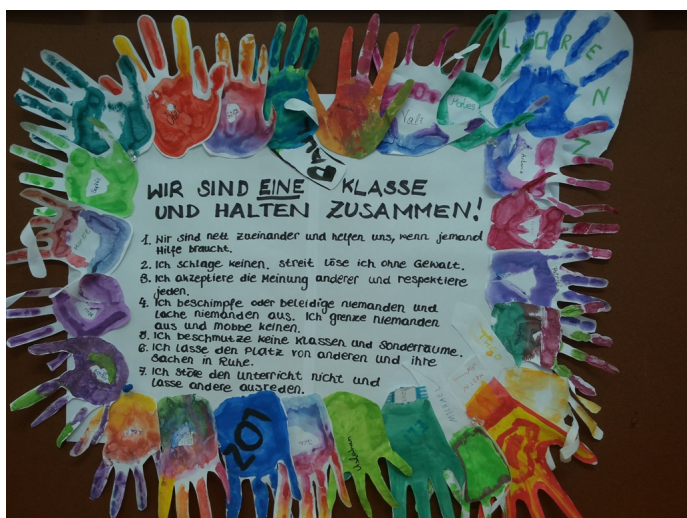 LOREN
N
Vali
Moses
PAL
WIR SIND EINE KLASSE
UND HALTEN ZUSAMMEN!
1. Wir sind nett zueinander und helfen uns, wenn jemand
Hilfe braucht.
2. Ich schlage keinen. streit löse ich ohne Gewalt.
3. Ich akzeptiere die Meinung anderer und respektiere
jeden.
4. Ich beschimpfe oder beleidige niemanden und
lache niemanden aus. Ich grenze niemanden
aus und mobbe keinen.
5. Ich beschmutze keine Klassen und Sonderräume.
6. Ich lasse den Platz von anderen und ihre
Sachen in Ruhe.
7. Ich störe den Unterricht nicht und
lasse andere ausreden.